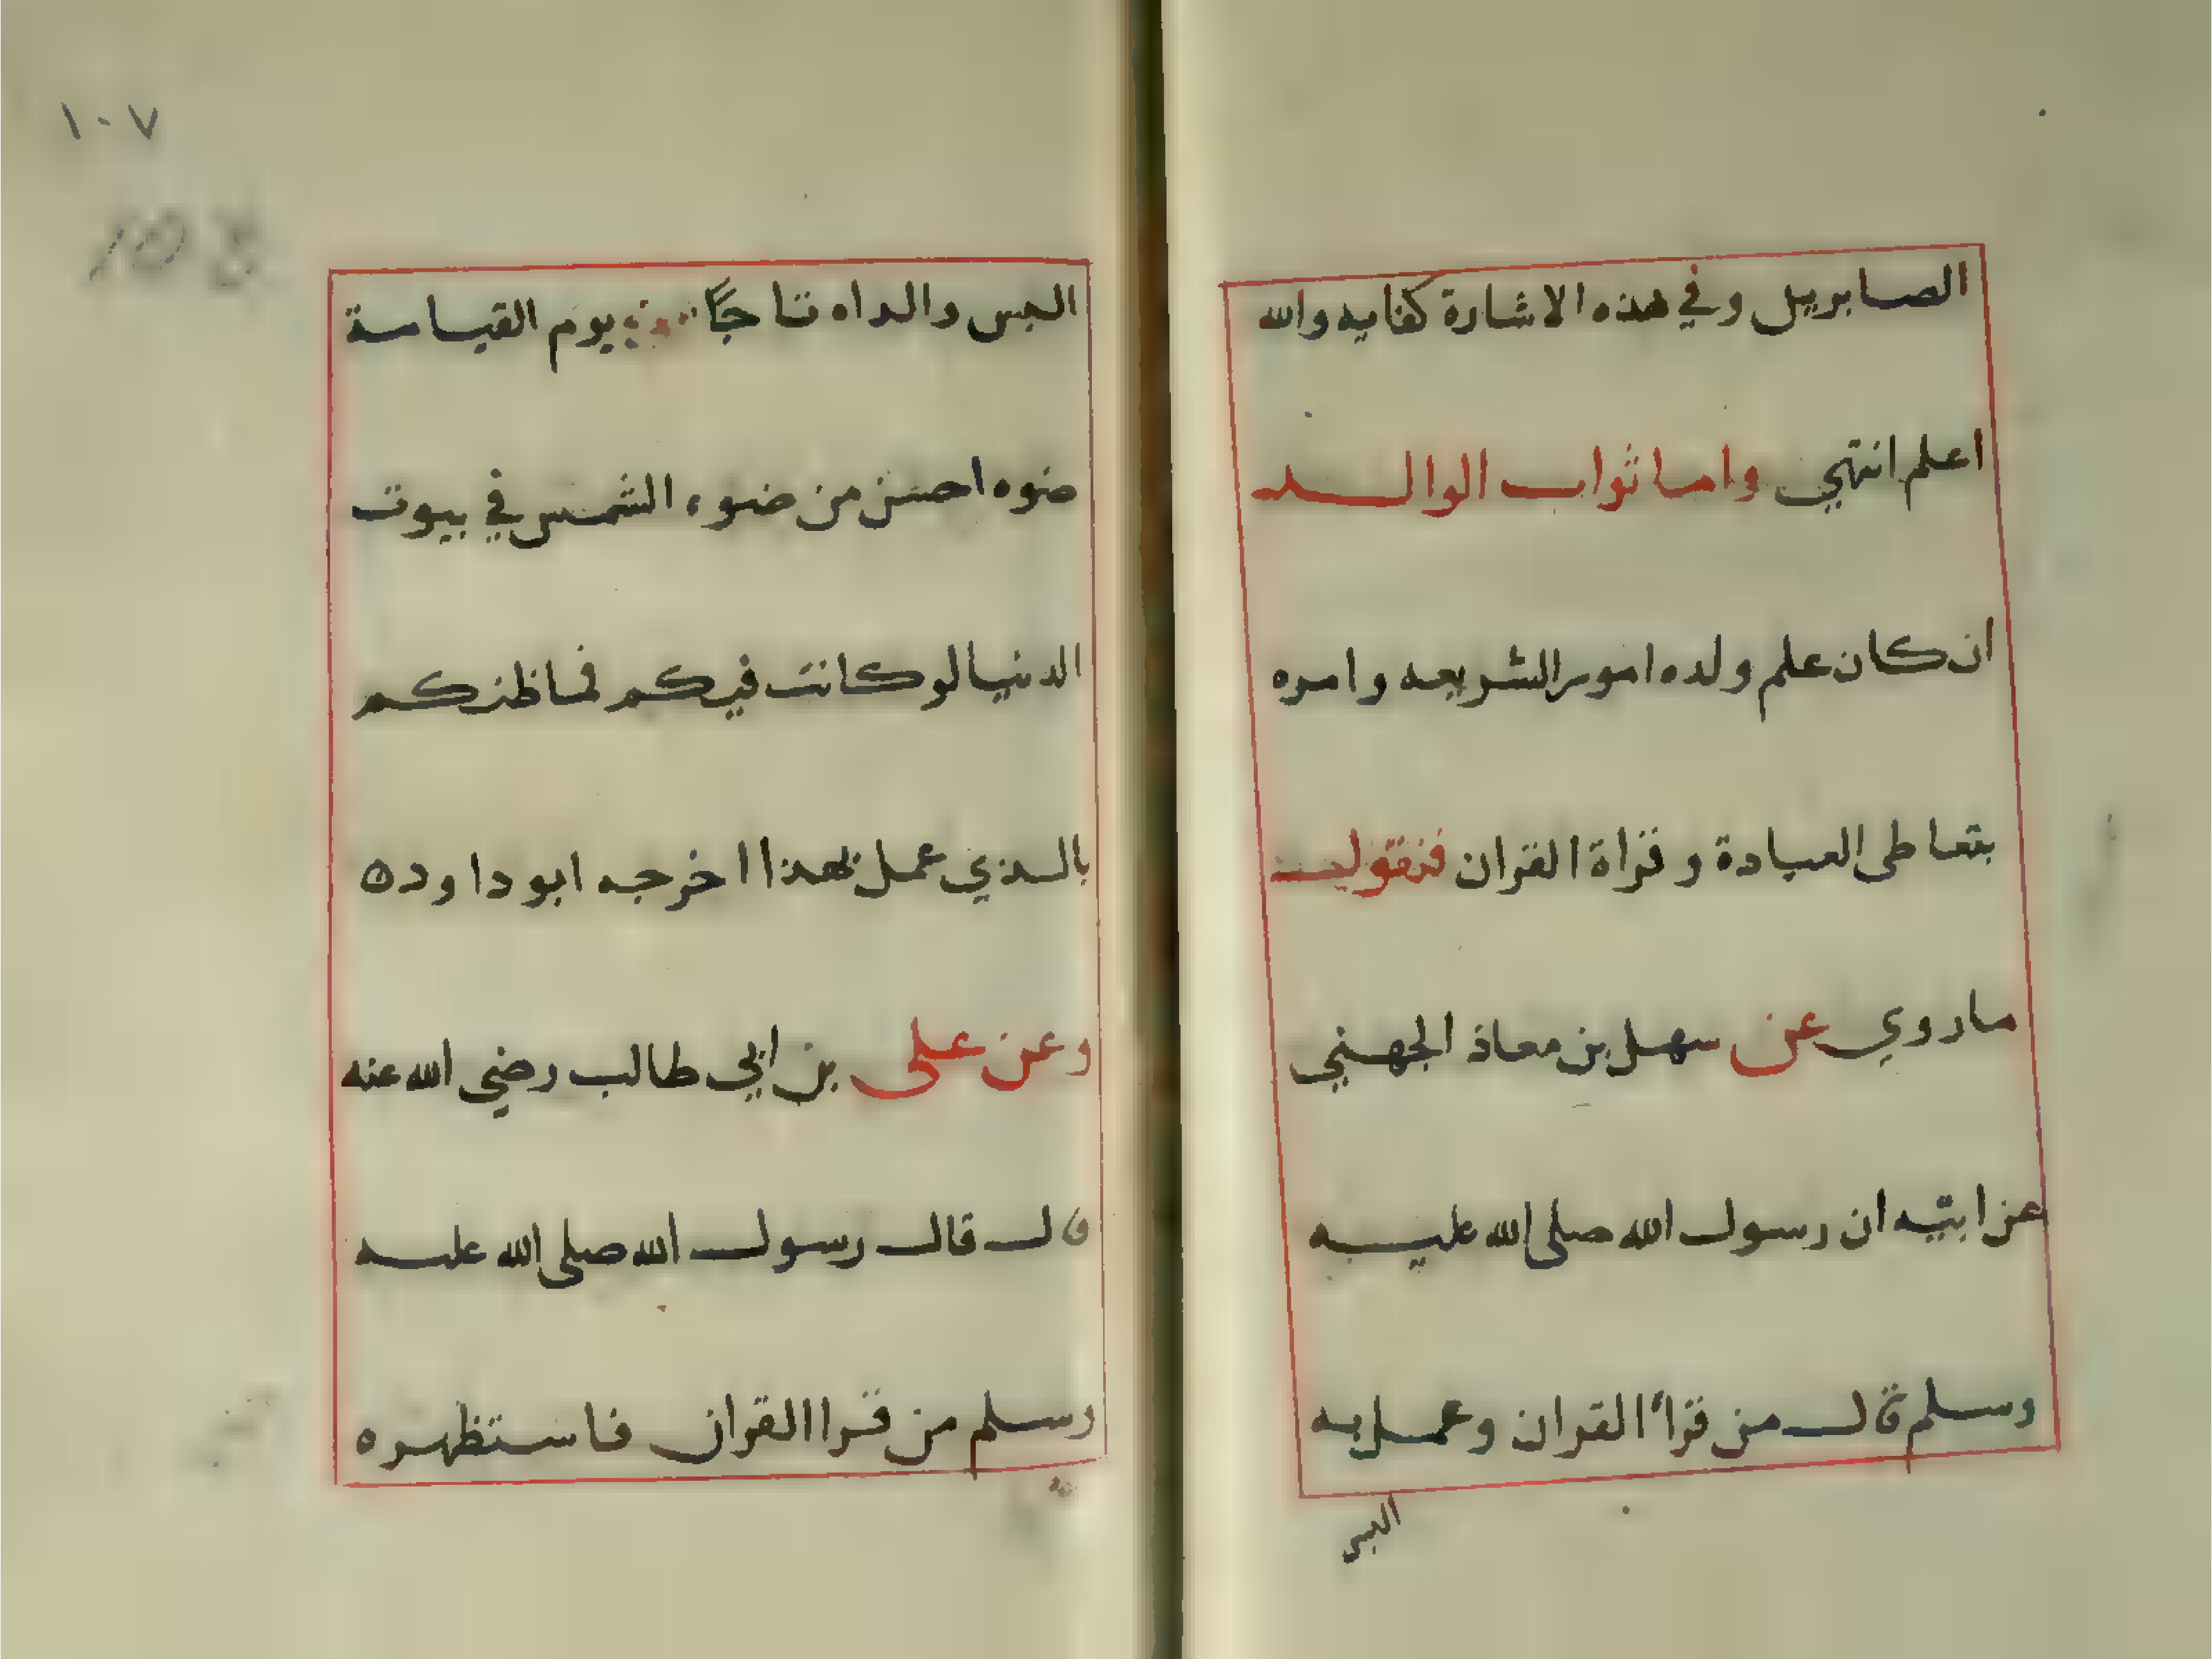 الصابريل وفي هذه الاشارة كفايه والله
اعلم انتهي واما ثواب الوالد
ان كان علم ولده امور الشريعه وامره
بتعاطى العبادة وقراة القران فنقول
ما روي عن سهل بن معاذ الجهني
عن ابيه ان رسول الله صلى الله عليه
وسلم قال من قرأ القران وعمل به
البس
١٠٧
البس والداه تاجًا يوم القيامة
ضوه احسن من ضوء الشمس في بيوت
الدنيا لو كانت فيكم فما ظنكم
بالذي عمل بهذا اخرجه ابو داود ه
وعن على بن ابي طالب رضي الله عنه
قال قال رسول الله صلى الله عليه
وسلم من قرا القران فاستظهره